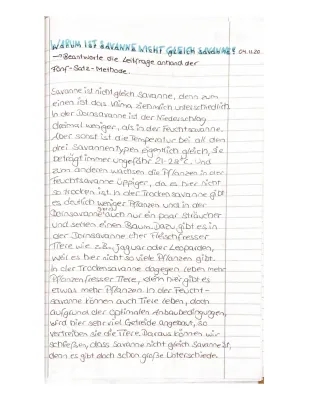 WARUM IST SAVANNE NICHT GLEICH SAVANNE? 04.11.20
→ Beantworte die Leitfrage anhand der
Fünf-Satz-Methode.
Savanne ist nicht gleich Savanne, denn zum
einen ist das Klima ziemlich unterschiedlich.
In der Dornsavanne ist der Niederschlag
dreimal weniger, als in der Feuchtsavanne.
Aber sonst ist die Temperatur bei all den
drei Savannentypen eigentlich gleich, sie
beträgt immer ungefähr 21-28°C. Und
zum anderen wachsen die Pflanzen in der
Feuchtsavanne üppiger, da es hier nicht
so trocken ist. In der Trockensavanne gibt
es deutlich weniger Pflanzen und in der
Dornsavanne auch nur ein paar Sträucher
und selten einen Baum. Dazu gibt es in
der Dornsavanne eher Fleischfresser
Tiere wie z.B. Jaguar oder Leoparden,
weil es hier nicht so viele Pflanzen gibt.
In der Trockensavanne dagegen leben mehr
Pflanzenfresser Tiere, denn hier gibt es
etwas mehr Pflanzen. In der Feucht-
savanne können auch Tiere leben, doch
aufgrund der optimalen Anbaubedingungen,
wird hier sehr viel Getreide angebaut, so
vertreiben sie die Tiere. Daraus können wir
schließen, dass Savanne nicht gleich Savanne ist,
denn es gibt doch schon große Unterschiede.